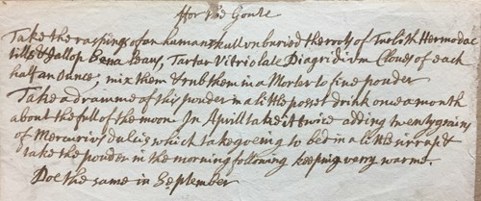 ffor the Goute
Take the raspings of an humane skull unburied the roots of Turbith Hermodac
tills & Jallop Sena Leav, Tartar Vitriolate Diagridium Cloves of each
half an ounce, mix them & rub them in a Morter to fine powder
Take a dramme of this powder in a little posset drink once a month
about the full of the moon In Aprill take it twice adding twenty grains
of Mercurius dulcis which take going to bed in a little sirrup &
take the powder in the morning following keeping verry warme.
Doe the same in September